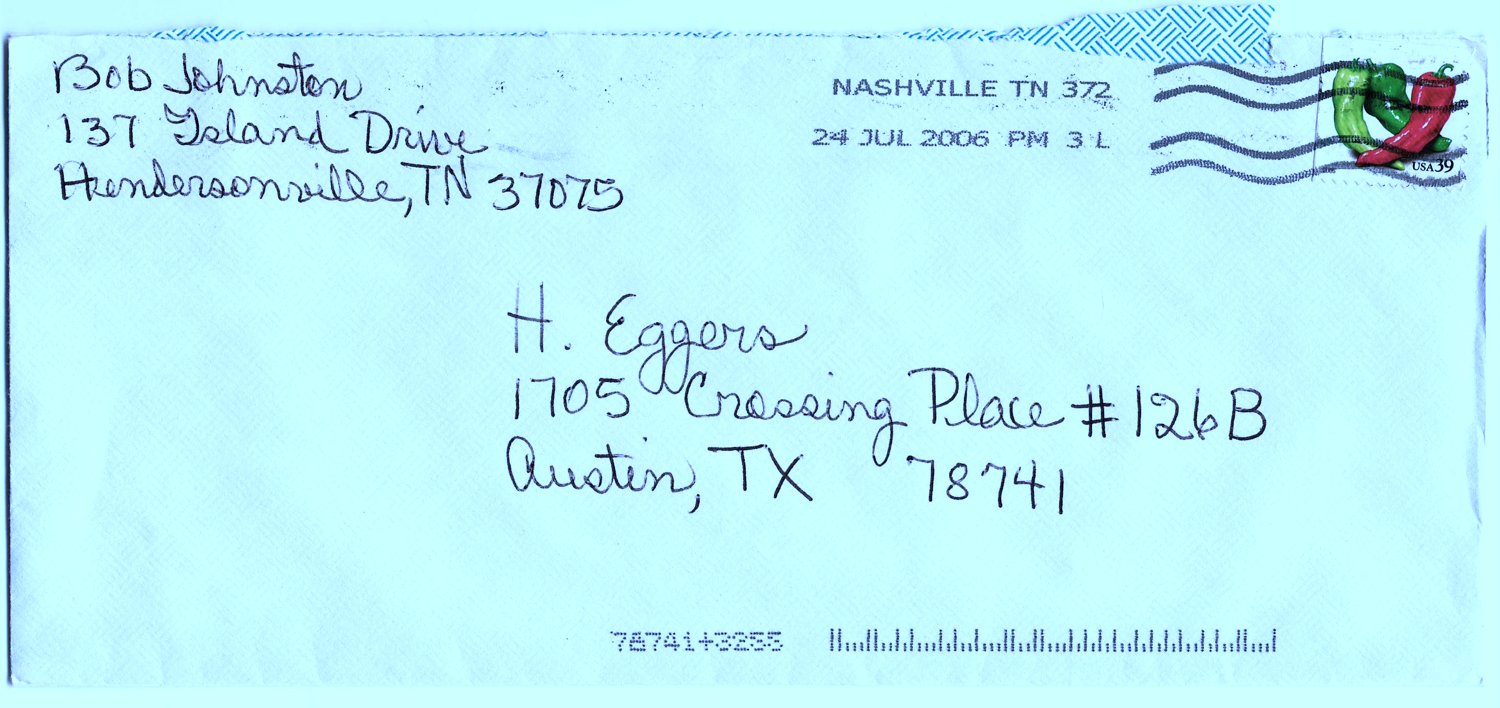 Bob Johnston
137 Island Drive
Hendersonville, TN 37075
NASHVILLE TN 372
24 JUL 2006 PM 3 L
USA 39
H. Eggers
1705 Crossing Place #126B
Austin, TX 78741
78741+3255